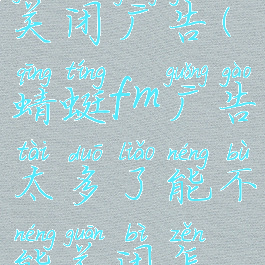 关闭广告(
qīng tíng guǎng gào
蜻蜓fm广告
tài duō liǎo néng bù
太多了能不
néng guān bì zěn
能关闭怎